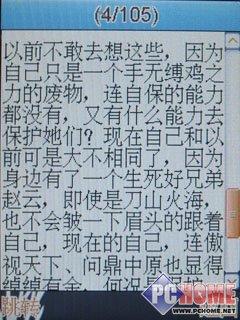 (4/105)
以前不敢去想这些，因为
自己只是一个手无缚鸡之
力的废物，连自保的能力
都没有，又有什么能力去
保护她们？现在自己和以
前可是大不相同了，因为
身边有了一个生死好兄弟
赵云，即使是刀山火海，
也不会皱一下眉头的跟着
自己，现在的自己，连傲
视天下、问鼎中原也显得
绰绰有余，何况是
PCHOME
www.PCHOME.NET